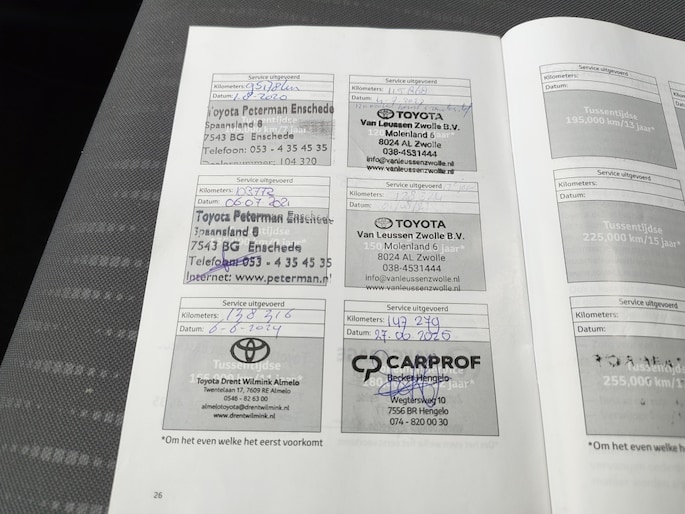 Service uitgevoerd
Kilometers: 95178km
Datum: 1-8-2020
Toyota Peterman Enschede
Spaansland 8
7543 BG Enschede
Telefoon: 053 - 4 35 45 35
104 320
Service uitgevoerd
Kilometers: 115868
Datum:
TOYOTA
Van Leussen Zwolle B.V.
Molenland 6
8024 AL Zwolle
038-4531444
info@vanleussenzwolle.nl
www.vanleussenzwolle.nl
Service uitgevoerd
Kilometers: 103772
Datum: 06.07 2021
Toyota Peterman Enschede
Spaansland 8
7543 BG Enschede
Telefoon: 053 - 4 35 45 35
Internet: www.peterman.nl
Service uitgevoerd
Kilometers:
Datum:
TOYOTA
Van Leussen Zwolle B.V.
Molenland 6
8024 AL Zwolle
038-4531444
info@vanleussenzwolle.nl
www.vanleussenzwolle.nl
Service uitgevoerd
Kilometers: 138316
Datum: 6-6-2024
Tussentijdse
Toyota Drent Wilmink Almelo
Twentelaan 17, 7609 RE Almelo
0546 - 82 63 00
almelotoyota@drentwilmink.nl
www.drentwilmink.nl
Service uitgevoerd
Kilometers: 147 279
Datum: 27.06 2025
CP CARPROF
Becker Hengelo
Wegtersweg 10
7556 BR Hengelo
074 - 820 00 30
*Om het even welke het eerst voorkomt
26
Service uitgevoerd
Kilometers:
Datum:
Tussentijdse
195,000 km/13 jaar*
Service uitgevoerd
Kilometers:
Datum:
Tussentijdse
225,000 km/15 jaar*
Service uitgevoerd
Kilometers:
Datum:
255,000 km/1
*Om het even welke het